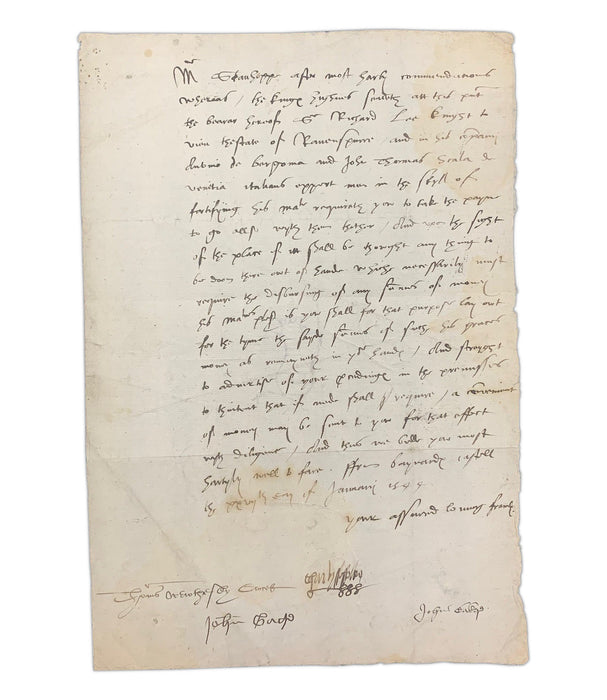 Mr Stanhopp after most harty commendations
wheras / the kings highnes sendeth att this pnt
the bearar hereof Sr Richard Lee knight to
view thestate of Ravenspurre and in his company
Antonio de Bargoma and John Thomas Scala de
venetia italians expert men in the skyll of
fortifying his mate requireth you to take the payne
to go also wyth them thether / And upon the sight
of the place if itt shall be thought any thing to
be doon there owt of hande which necessarily must
require the disbursing of any summes of money
his mates plesr is you shall for that purpose lay out
for the tyme the sayde summes of such his graces
money as remayneth in yor handes / And streyght
to advertise of your procedings in the premisses
to thintent that if nede shall so require / a convenient
of money may be sent to you for that effect
wyth diligence / And thus we bidde you most
hartyly well to fare . ffrom baynardes castell
the day of January 154
your assured loving frends
Thomas Wriothesley Cancel
John Gage